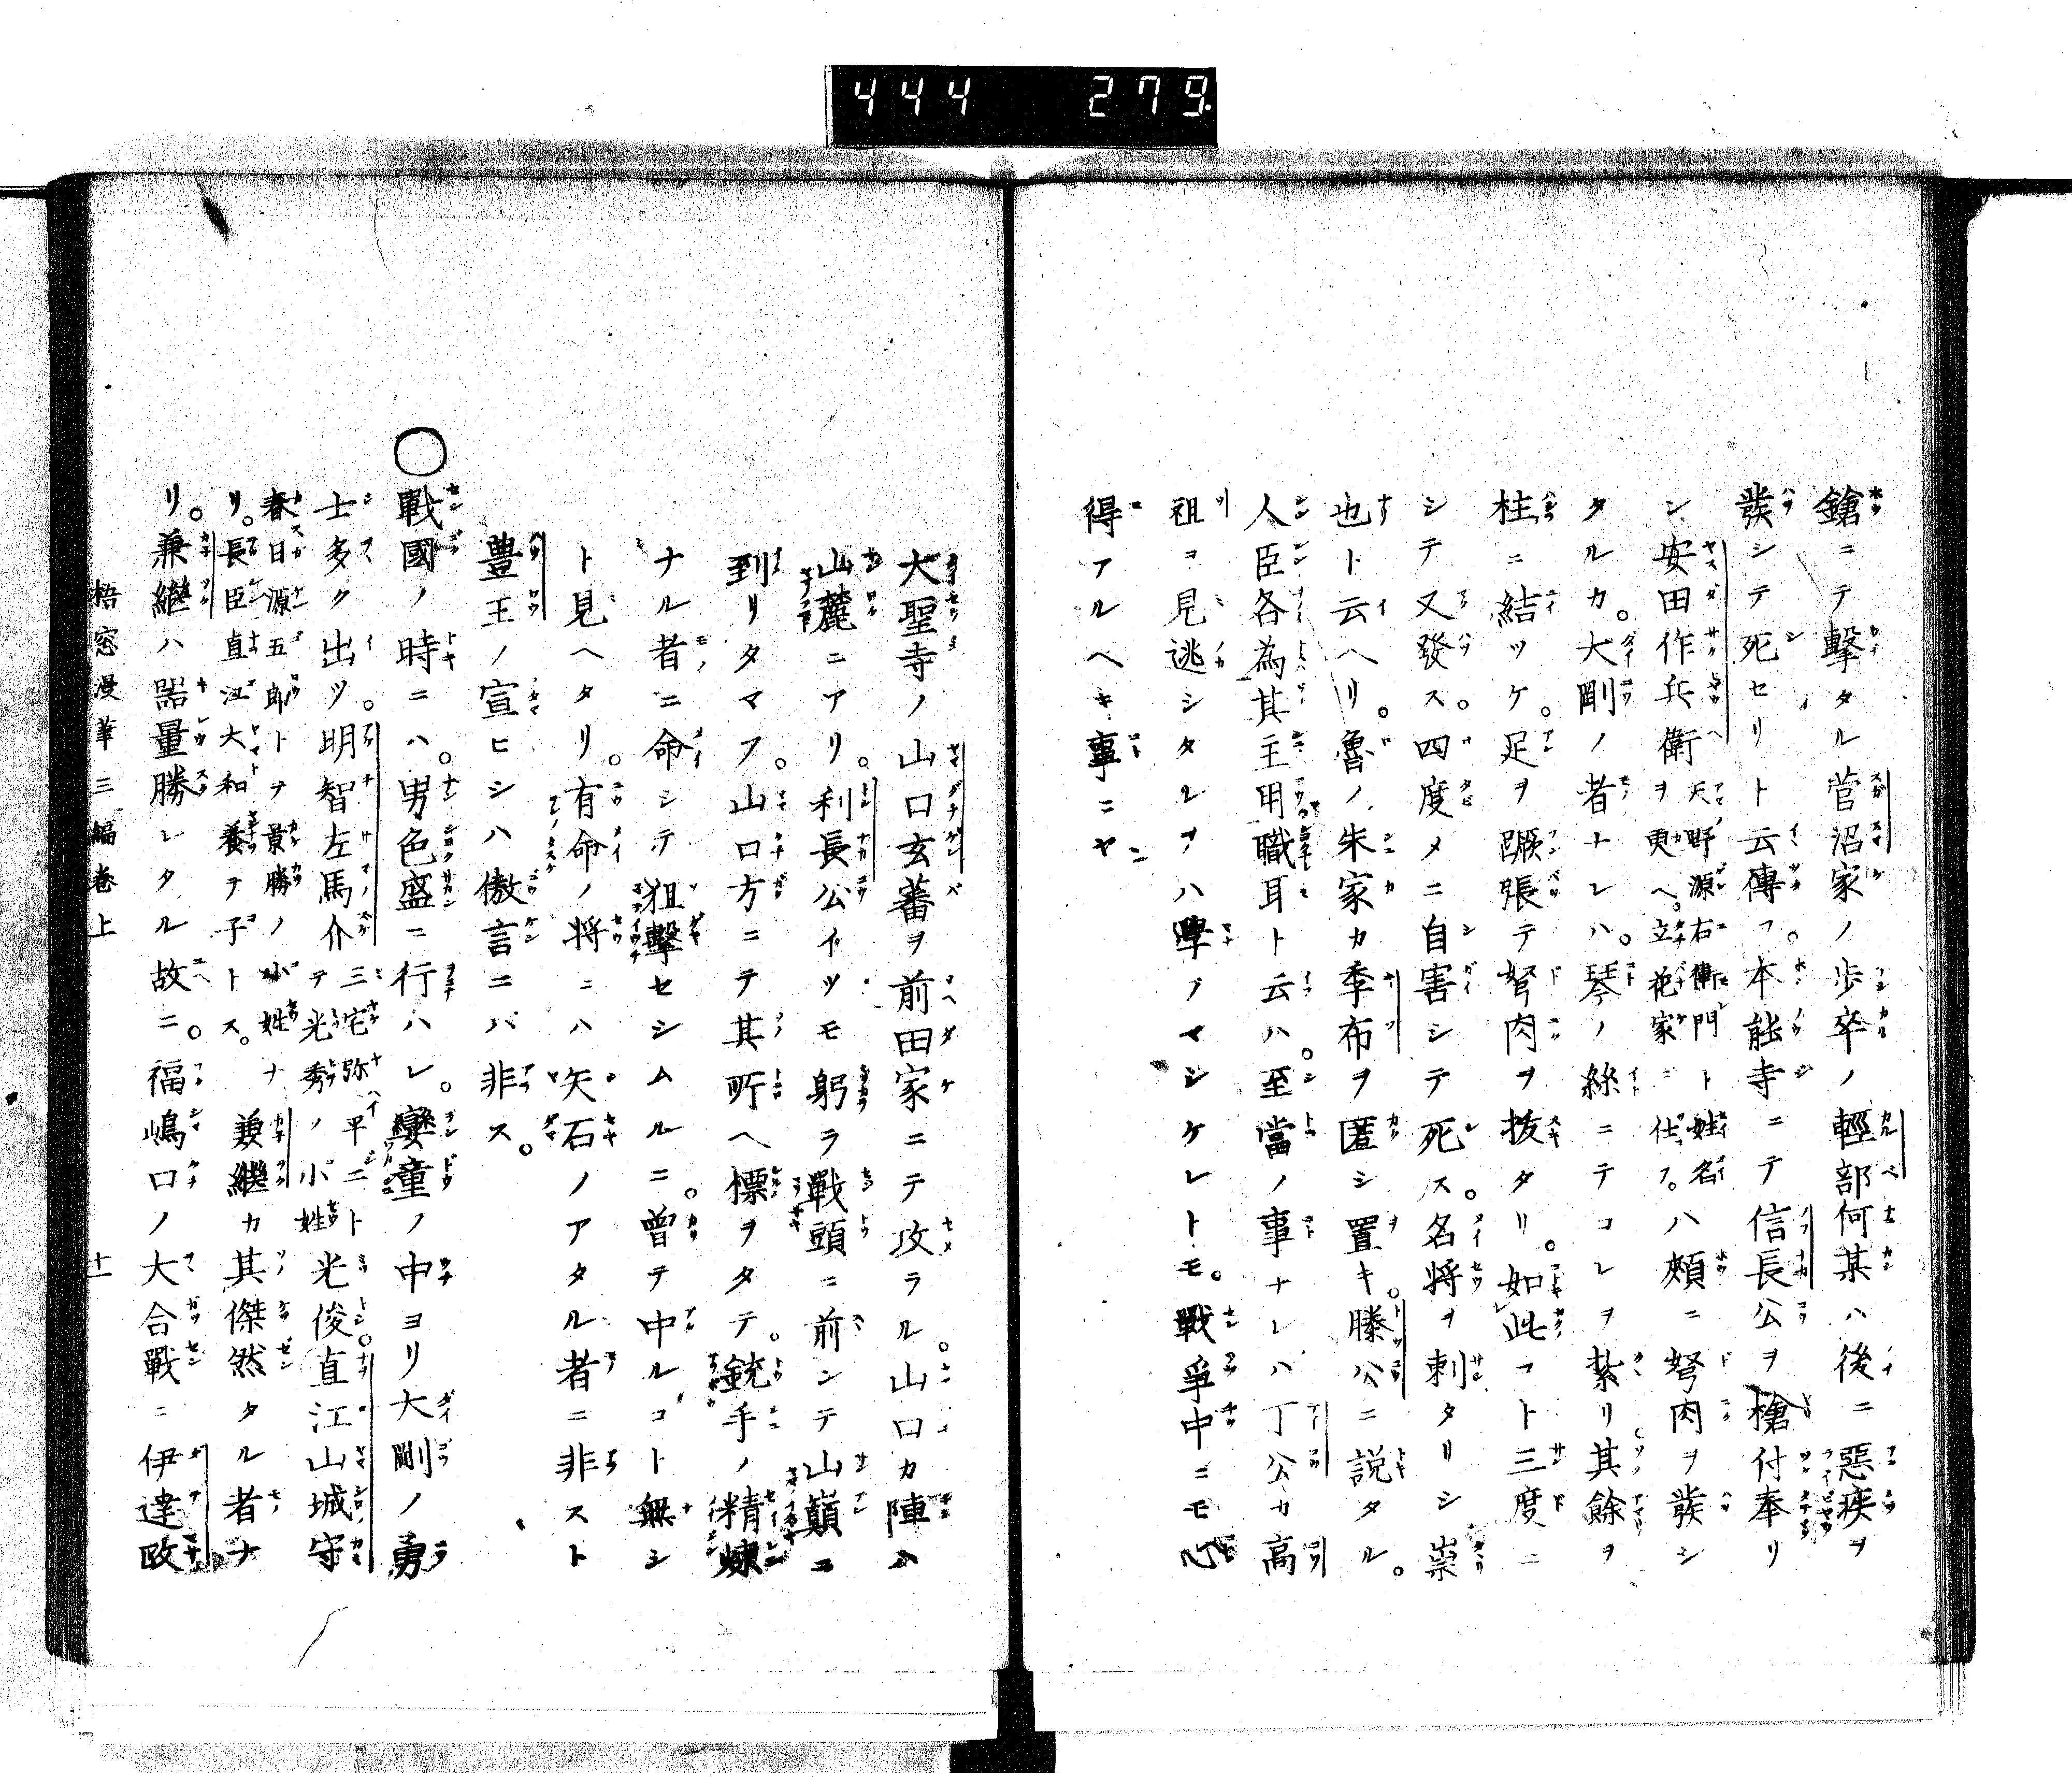 444 279
鎗ニテ撃タル菅沼家ノ歩卒ノ輕部何某ハ後ニ惡疾ヲ
發シテ死セリト云傳フ。本能寺ニテ信長公ヲ槍付奉リ
シ安田作兵衛天野源右衛門ト姓名ヲ更ヘ。立花家ニ仕フ。ハ頬ニ弩肉ヲ發シ
タルカ。大剛ノ者ナレハ。琴ノ絲ニテコレヲ紮リ其餘ヲ
柱ニ結ツケ。足ヲ蹶張テ弩肉ヲ拔タリ。如此コト三度ニ
シテ又發ス。四度メニ自害シテ死ス。名将ヲ刺タリシ祟
也ト云ヘリ。魯ノ朱家カ季布ヲ匿シ置キ。滕公ニ説タル。
人臣各為其主用職耳ト云ハ。至當ノ事ナレハ丁公カ高
祖ヲ見逃シタルヲハ學ブマシケレトモ。戰爭中ニモ心
得アルヘキ事ニヤ
大聖寺ノ山口玄蕃ヲ前田家ニテ攻ラル。山口カ陣ハ
山麓ニアリ。利長公イツモ躬ラ戰頭ニ前ンテ山巓ニ
到リタマフ。山口方ニテ其所ヘ標ヲタテ。銃手ノ精煉
ナル者ニ命シテ狙擊セシムルニ。曽テ中ルコト無シ
ト見ヘタリ。有命ノ将ニハ矢石ノアタル者ニ非スト
豊王ノ宣ヒシハ傲言ニバ非ス。
〇戰國ノ時ニハ。男色盛ニ行ハレ。孌童ノ中ヨリ大剛ノ勇
士多ク出ツ。明智左馬介三宅弥平ニトテ光秀ノ小姓光俊。直江山城守
春日源五郎トテ景勝ノ小姓ナリ。長臣直江大和養テ子トス。兼繼カ其傑然タル者ナ
リ。兼繼ハ器量勝レタル故ニ。福嶋口ノ大合戰ニ伊達政
梧窓漫筆三編卷上 十一